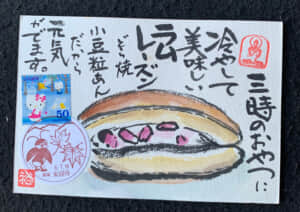 三時のおやつに
冷やして
美味しい
ラム
レーズン
どら焼
小豆粒あん
だから
元気
がでます。
50